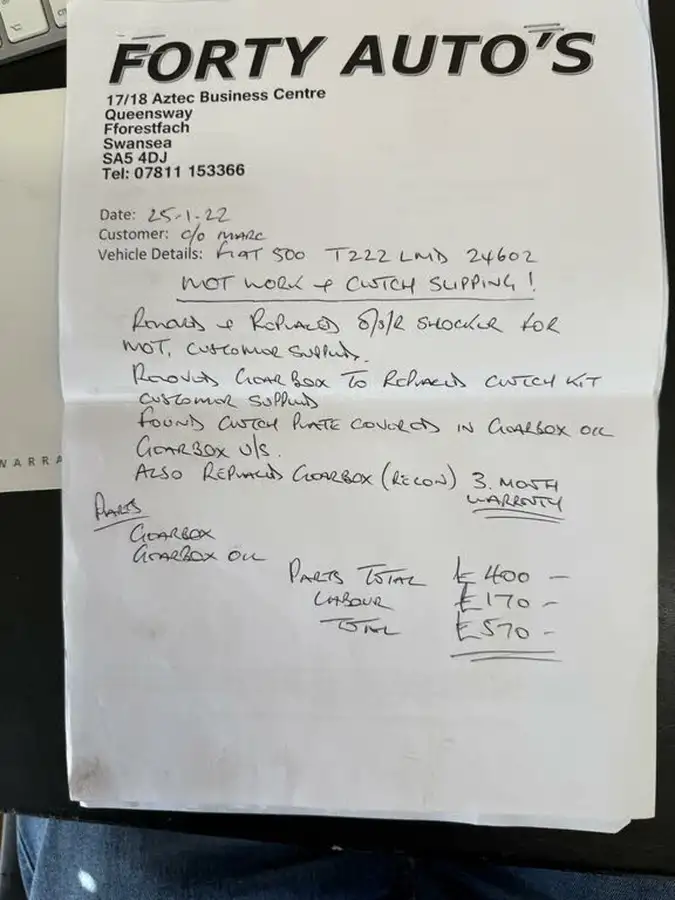 FORTY AUTO'S
17/18 Aztec Business Centre
Queensway
Fforestfach
Swansea
SA5 4DJ
Tel: 07811 153366
Date: 25-1-22
Customer: c/o MARC
Vehicle Details: FIAT 500 T222 LMD 24602
MOT WORK + CLUTCH SLIPPING!
REMOVED + REPLACED O/S/R SHOCKER FOR
MOT, CUSTOMER SUPPLIED.
REMOVED GEARBOX TO REPLACED CLUTCH KIT
CUSTOMER SUPPLIED
FOUND CLUTCH PLATE COVERED IN GEARBOX OIL
GEARBOX U/S.
ALSO REPLACED GEARBOX (RECON) 3. MONTH
WARRENTY
PARTS
GEARBOX
GEARBOX OIL
PARTS TOTAL £400 —
LABOUR £170 —
TOTAL £570 —
WARRA